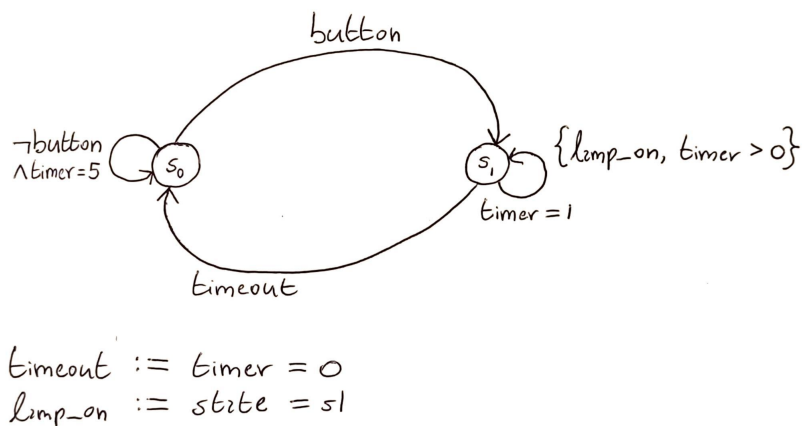 button
¬button
∧timer=5
S₀
S₁
{lamp_on, timer > 0}
timer = 1
timeout
timeout := timer = 0
lamp_on := state = s1